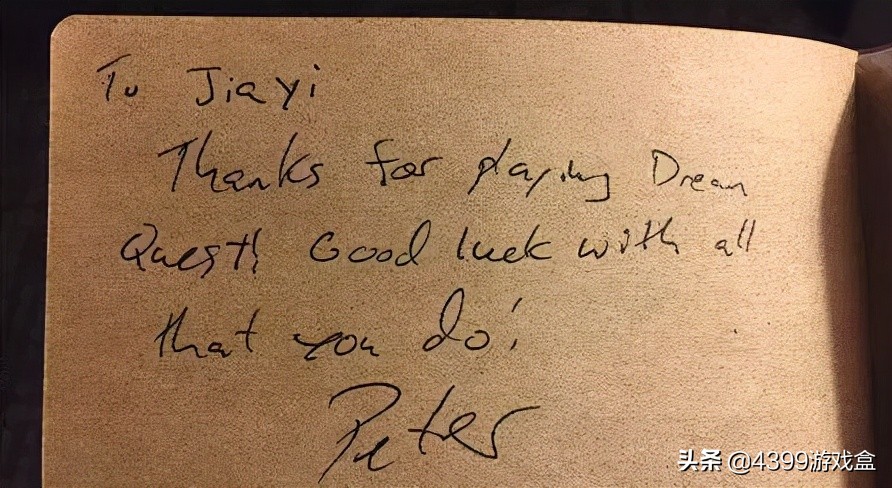 To Jiayi
Thanks for playing Dream
Quest! Good luck with all
that you do!
Peter
头条 @4399游戏盒